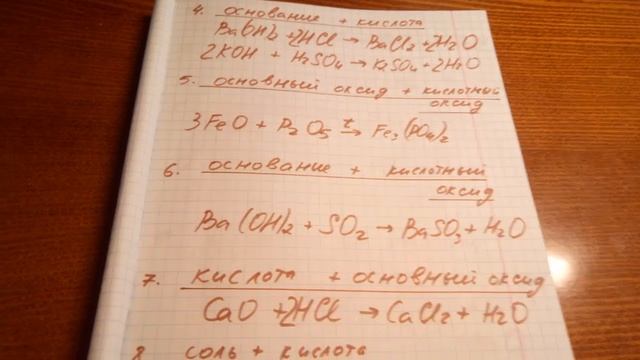 4. основание + кислота
Ba(OH)2 + 2HCl → BaCl2 + 2H2O
2KOH + H2SO4 → K2SO4 + 2H2O
5. основный оксид + кислотный
оксид
3FeO + P2O5 t→ Fe3(PO4)2
6. основание + кислотный
оксид
Ba(OH)2 + SO2 → BaSO3 + H2O
7. кислота + основный оксид
CaO + 2HCl → CaCl2 + H2O
8 соль + кислота